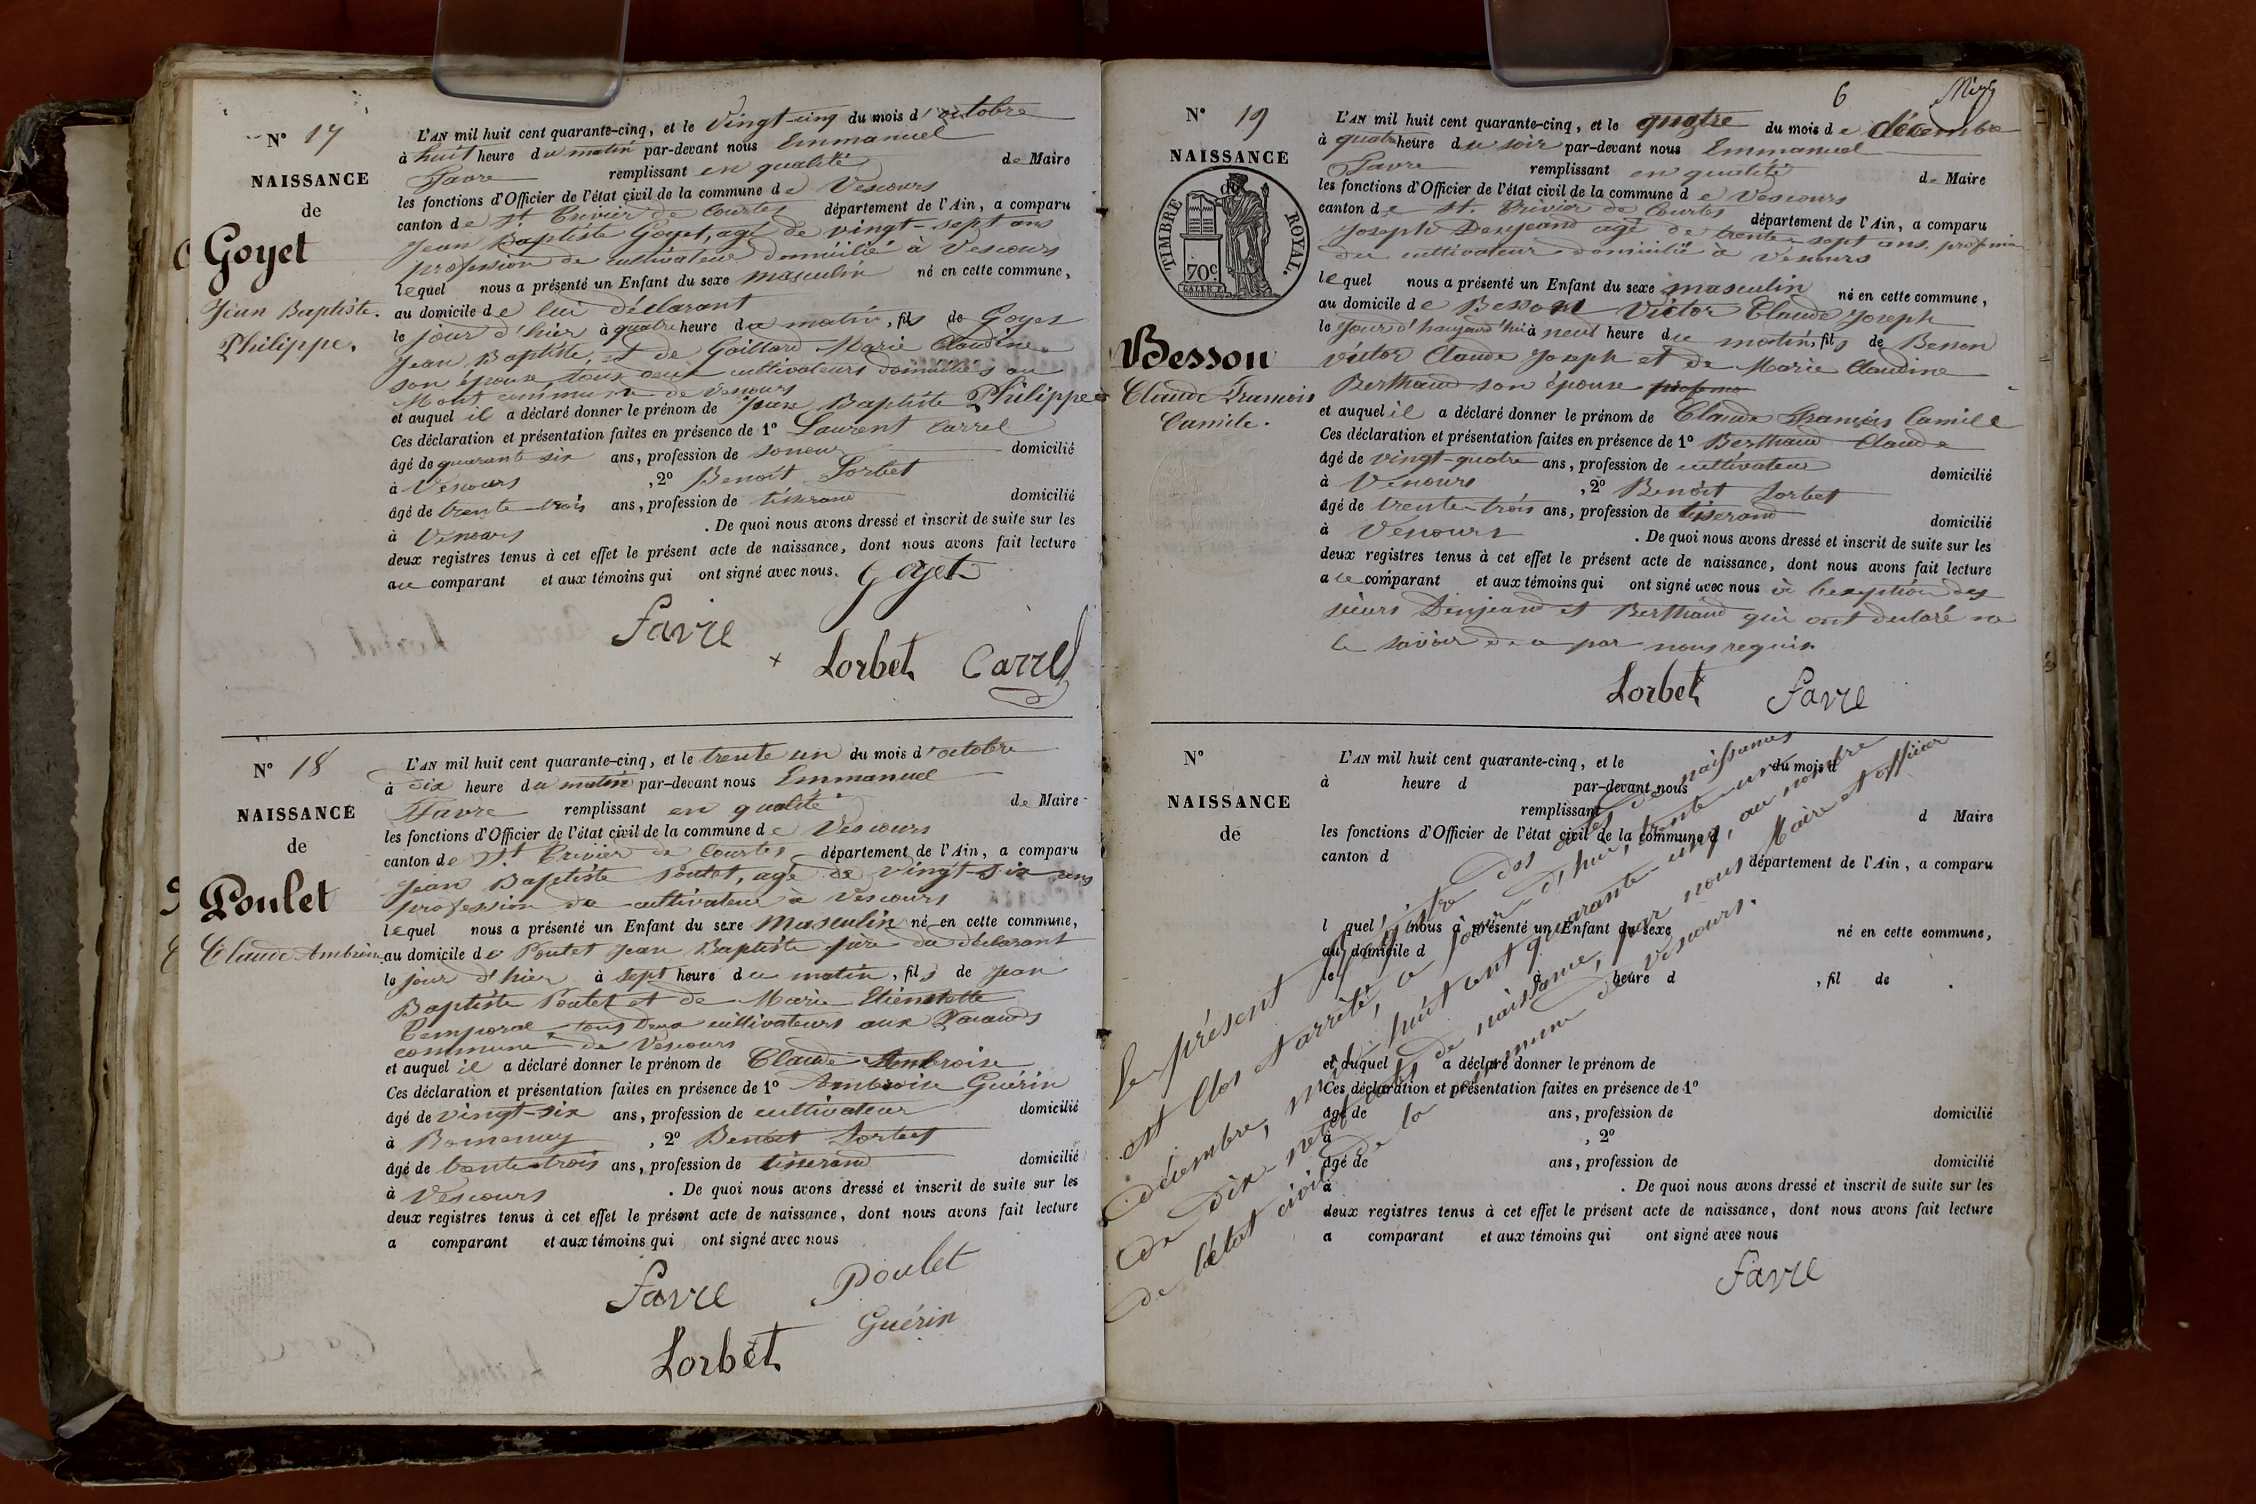 N° 17
NAISSANCE
de
Goyet
Jean Baptiste
Philippe.
L'AN mil huit cent quarante-cinq, et le Vingt-cinq du mois d'octobre
à huit heure du matin par-devant nous Emmanuel
Favre remplissant en qualité de Maire
les fonctions d'Officier de l'état civil de la commune de Vescours
canton de St Trivier de Courtes département de l'Ain, a comparu
Jean Baptiste Goyet, agé de vingt-sept ans
profession de cultivateur domicilié à Vescours
lequel nous a présenté un Enfant du sexe masculin né en cette commune,
au domicile de lui déclarant
le jour d'hier à quatre heure du matin, fils de Goyet
Jean Baptiste, et de Gaillard Marie Claudine
son épouse, tous deux cultivateurs domiciliés au
Mont commune de Vescours
et auquel il a déclaré donner le prénom de Jean Baptiste Philippe
Ces déclaration et présentation faites en présence de 1° Laurent Carrel
âgé de quarante six ans, profession de domicilié
à Vescours , 2° Benoit Lorbet
âgé de trente-trois ans, profession de tisserand domicilié
à Vescours . De quoi nous avons dressé et inscrit de suite sur les
deux registres tenus à cet effet le présent acte de naissance, dont nous avons fait lecture
au comparant et aux témoins qui ont signé avec nous. Goyet
Favre
Lorbet Carrel
N° 18
NAISSANCE
de
Poulet
Claude Ambroise
L'AN mil huit cent quarante-cinq, et le trente un du mois d'octobre
à dix heure du matin par-devant nous Emmanuel
Favre remplissant en qualité de Maire
les fonctions d'Officier de l'état civil de la commune de Vescours
canton de St Trivier de Courtes département de l'Ain, a comparu
Jean Baptiste Poulet, agé de vingt-six ans
profession de cultivateur à Vescours
lequel nous a présenté un Enfant du sexe Masculin né en cette commune,
au domicile de Poulet Jean Baptiste père du déclarant
le jour d'hier à sept heure du matin, fils de Jean
Baptiste Poulet et de Marie Etiennette
Temporal tous deux cultivateurs aux
commune de Vescours
et auquel il a déclaré donner le prénom de Claude Ambroise
Ces déclaration et présentation faites en présence de 1° Ambroise Guérin
âgé de vingt-six ans, profession de cultivateur domicilié
à Romenay , 2° Benoit Lorbet
âgé de trente-trois ans, profession de tisserand domicilié
à Vescours . De quoi nous avons dressé et inscrit de suite sur les
deux registres tenus à cet effet le présent acte de naissance, dont nous avons fait lecture
a comparant et aux témoins qui ont signé avec nous
Favre Poulet
Guérin
Lorbet
6
N° 19
NAISSANCE
TIMBRE ROYAL.
70c.
Besson
Claude François
Camile.
L'AN mil huit cent quarante-cinq, et le quatre du mois de décembre
à quatre heure du soir par-devant nous Emmanuel
Favre remplissant en qualité de Maire
les fonctions d'Officier de l'état civil de la commune de Vescours
canton de St. Trivier de Courtes département de l'Ain, a comparu
Joseph Desjeand agé de trente-sept ans, profession
de cultivateur domicilié à Vescours
lequel nous a présenté un Enfant du sexe masculin né en cette commune,
au domicile de Besson Victor Claude Joseph
le Jour d'haujourd'hui à neuf heure du matin, fils de Besson
victor Claude Joseph et de Marie Claudine
Berthaud son épouse
et auquel il a déclaré donner le prénom de Claude François Camile
Ces déclaration et présentation faites en présence de 1° Berthaud Claude
âgé de vingt-quatre ans, profession de cultivateur domicilié
à Vescours , 2° Benoit Lorbet
âgé de trente-trois ans, profession de tisserand domicilié
à Vescours . De quoi nous avons dressé et inscrit de suite sur les
deux registres tenus à cet effet le présent acte de naissance, dont nous avons fait lecture
au comparant et aux témoins qui ont signé avec nous à l'exeption des
sieurs Desjeand et Berthaud qui ont declaré ne
le savoir de ce par nous requis
Lorbet Favre
N°
NAISSANCE
de
L'AN mil huit cent quarante-cinq, et le du mois d
à heure d par-devant nous
remplissant d Maire
les fonctions d'Officier de l'état civil de la commune d
canton d département de l'Ain, a comparu
l quel nous a présenté un Enfant du sexe né en cette commune,
au domicile d
le à heure d , fil de .
et auquel a déclaré donner le prénom de
Ces déclaration et présentation faites en présence de 1°
âgé de ans, profession de domicilié
à , 2°
âgé de ans, profession de domicilié
à . De quoi nous avons dressé et inscrit de suite sur les
deux registres tenus à cet effet le présent acte de naissance, dont nous avons fait lecture
a comparant et aux témoins qui ont signé avec nous
Le présent Registre des actes de naissances
est clos et arrêté, ce jour-d'hui, trente-un
décembre, mil huit cent quarante-cinq, au nombre
de dix-neuf actes de naissance, par nous Maire et officier
de l'état civil de la commune de Vescours.
Favre